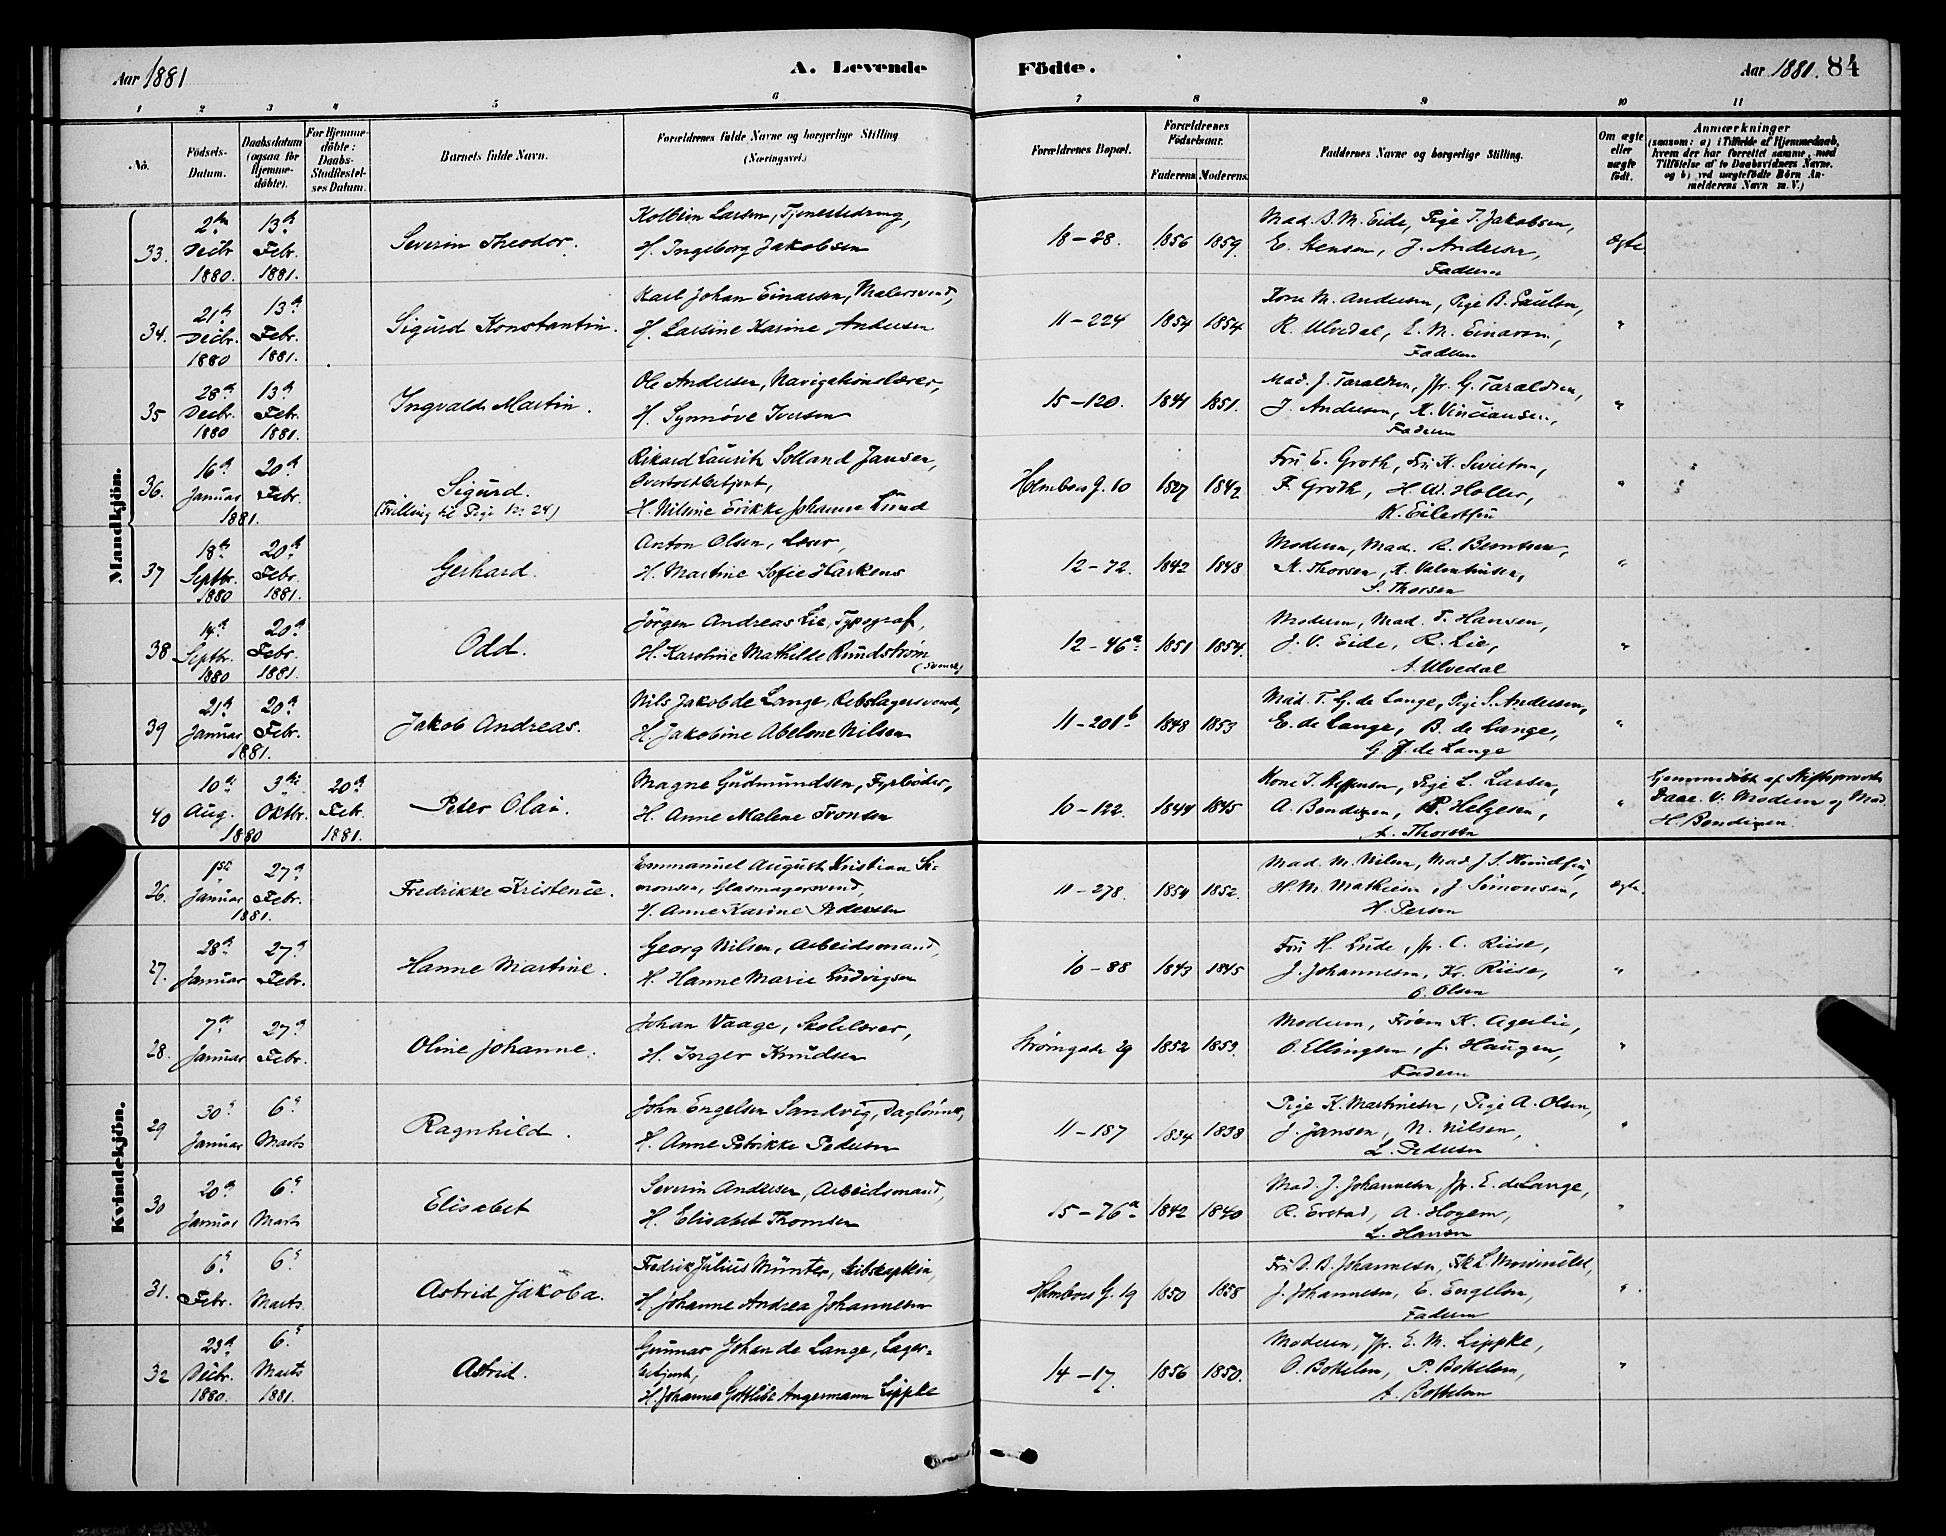 Aar 1881 A. Levende Födte. Aar 1881. 84
1 2 3 4 5 6 7 8 9 10 11
Nö. Födsels-Datum. Daabsdatum (ogsaa for Hjemme-döbte). For Hjemme-döbte: Daabs-Stadfæstel-ses Datum. Barnets fulde Navn. Forældrenes fulde Navne og borgerlige Stilling (Næringsvei.) Forældrenes Bopæl. Forældrenes Födselsaar. Faderens Moderens. Faddernes Navne og borgerlige Stilling. Om ægte eller uægte födt. Anmærkninger (saasom: a) i Tilfælde af Hjemmedaab, hvem der har forrettet samme, med Tilföielse af to Daabsvidners Navne. og b) ved uægtefödte Börn An-melderens Navn m.V.)
Mandkjön.
33. 2den Decbr. 1880. 13de Febr. 1881. Severin Theodor. Kolbein Larsen, Tjenestedreng,
H. Ingeborg Jakobsen 18-28. 1856 1859. Mad. B. M. Eide, Pige I. Jakobsen,
E. Hensen, J. Andersen,
Faderen ægte
34. 21de Decbr. 1880 13de Febr. 1881. Sigurd Konstantin. Karl Johan Einarsen, Malersvend,
H. Larsine Karine Andersen 11-224 1854 1854 Kone M. Andersen, Pige B. Paulsen,
R. Ulvedal, E. M. Einarsen,
Faderen "
35 28de Decbr. 1880 13de Febr. 1881. Ingvald Martin. Ole Andersen, Navigationslærer,
H. Synnöve Iversen 15-120. 1841 1851. Mad. J. Taraldsen, Jfr. G. Taraldsen,
J. Andersen, K. Vinciansen,
Faderen "
36. 16de Januar 20de Febr. 1881. Sigurd.
(Tvilling til Pige No 24) Rikard Lauritz Solland Jansen,
Overtoldbetjent,
H. Nilsine Erikke Johanne Lund Holmboes G. 10 1827 1842 Fru E. Groth, Fru K. Sivertsen,
F. Groth, H. W. Holler,
K. Eilertsen "
37 18de Septbr. 1880 20de Febr. 1881. Gerhard. Anton Olsen, Lærer,
H. Martine Sofie Harkens 12-72. 1842 1848 Moderen, Mad. R. Berntsen,
N. Thorsen, A. Valentinsen,
S. Thorsen "
38 14de Septbr. 1880 20de Febr. 1881. Odd. Jörgen Andreas Lie, Typograf,
H. Karoline Mathilde Rundström
(Svensk) 12-46a 1851 1854. Moderen, Mad. T. Hansen,
J. V. Eide, R. Lie,
A. Ulvedal "
39 21de Januar 20de Febr. 1881. Jakob Andreas. Nils Jakob de Lange, Rebslagersvend,
H. Jakobine Abelone Nilsen 11-201b 1848 1853 Mad. T. G. de Lange, Pige S. Andersen,
E. de Lange, B. de Lange,
G. J. de Lange "
40 10de Aug. 3die Oktbr. 1880 20de Febr. 1881. Peter Olai. Magne Gudmundsen, Fyrböder,
H. Anne Malene Tronsen 10-122. 1844 1845 Kone I. Steffensen, Pige L. Larsen,
A. Bendixen, P. Helgesen,
A. Thorsen " Hjemmedöbt af Stiftsprovst
Daae. V. Moderen og Mad.
H. Bendixen.
Kvindekjön.
26. 1ste Januar 27de Febr. 1881. Fredrikke Kristence. Emmanuel August Kristian Si-
monsen, Glasmagersvend,
H. Anne Karine Pedersen 11-278. 1854 1852. Mad. M. Nilsen, Mad. J. S. Knudsen,
H. M. Mathiesen, J. Simonsen,
H. Persen ægte.
27. 28de Januar 27de Febr. Hanne Martine. Georg Nilsen, Arbeidsmand,
H. Hanne Marie Ludvigsen 10-88 1843 1845 Fru H. Lude, Jfr. C. Riise,
J. Johannesen, Kr. Riise,
O. Olsen "
28. 7de Januar 27de Febr. Oline Johanne. Johan Vaage, Skolelærer,
H. Inger Knudsen Strömgade 29 1852 1853. Moderen, Fröken K. Agerlie,
O. Ellingsen, J. Haugen,
Faderen "
29 30te Januar 6te Marts Ragnhild. John Engelsen Sandvig, Daglönner,
H. Anne Petrikke Pedersen 11-187 1834 1838 Pige K. Martinesen, Pige A. Olsen,
J. Jansen, N. Nilsen,
L. Pedersen "
30 20de Januar 6te Marts Elisabet Severin Andersen, Arbeidsmand,
H. Elisabet Thomsen 15-76a 1842 1840 Mad. J. Johannesen, Jfr. E. de Lange,
R. Erstad, A. Hoyem,
L. Hansen "
31. 6te Febr. 6te Marts Astrid Jakoba. Fredrik Julius Münster, Skibskaptein,
H. Johanne Andrea Johannesen Holmboes G. 19 1850 1858 Fru D. B. Johannesen,
J. Johannesen, E. Engelsen,
Faderen "
32 23de Decbr. 1880. 6te Marts 1881. Astrid. Gunnar Johan de Lange, Lager-
betjent,
H. Johanne Gottlibe Angermann Lippke 14-17. 1856 1850. Moderen, Jfr. E. M. Lippke,
O. Bottelsen, P. Bottelsen,
A. Bottelsen "